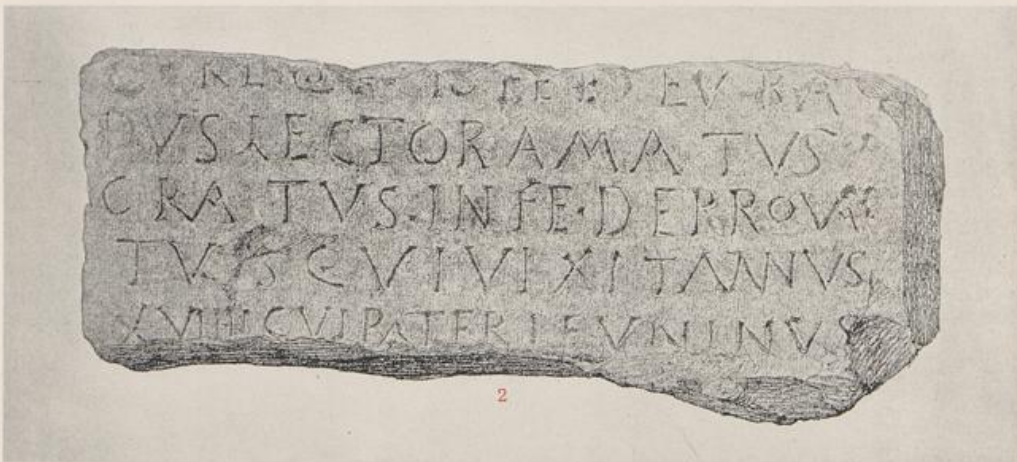 EV·RA
DVS LECTOR AMA TVS
CRA TVS·IN FE·DE PRROVA
TVS CVI VIXIT ANNVS
XVIIII CVI PATER IEVNINVS
2